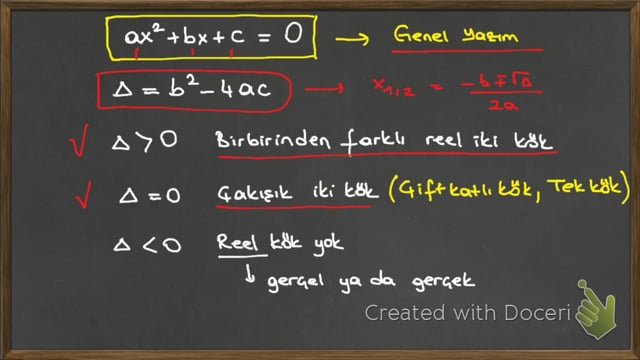 ax² + bx + c = 0 → Genel yazım
Δ = b² - 4ac → x₁,₂ = (-b ∓ √Δ) / 2a
✓ Δ > 0 Birbirinden farklı reel iki kök
✓ Δ = 0 Çakışık iki kök (Çift katlı kök, Tek kök)
Δ < 0 Reel kök yok
↓ gerçel ya da gerçek
Created with Doceri